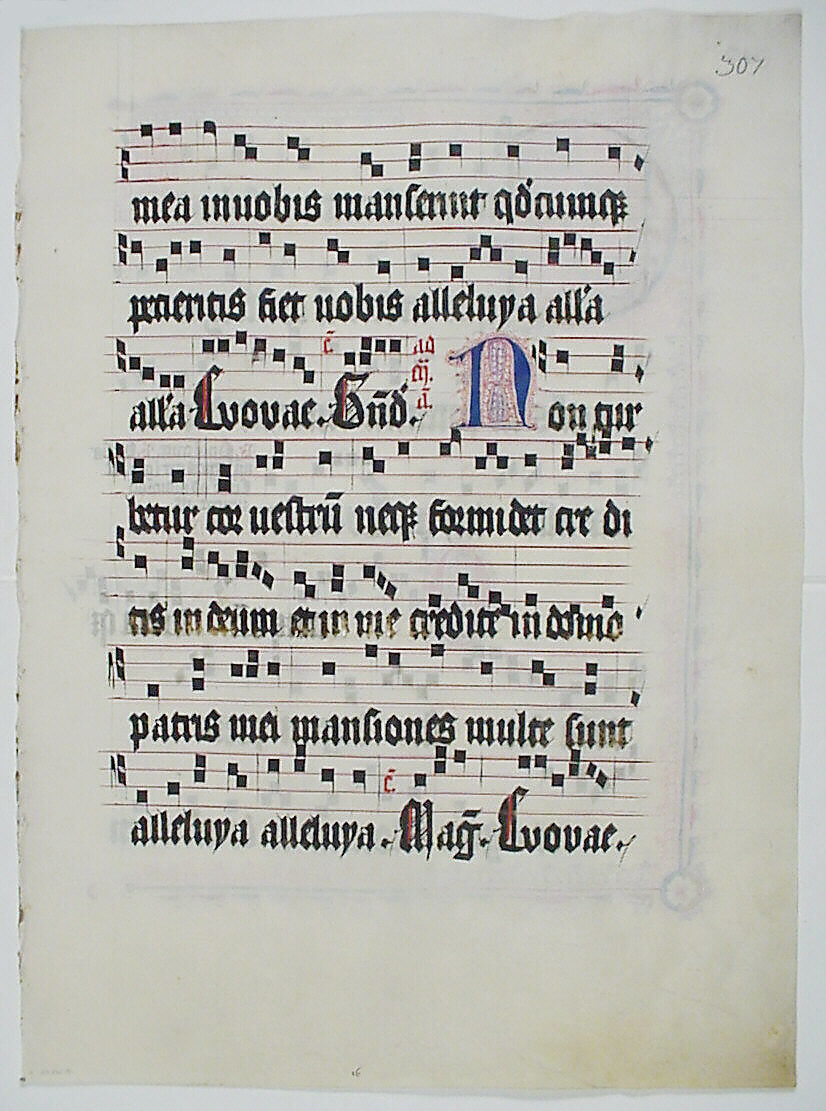 307
mea in uobis manserint qd̛cumq̷
petieritis fiet uobis alleluya all'a
all'a Euouae. Bn̄d'. c̄ ad Non tur
betur cor uestrū neq̷ formidet cre di
tis in deum et in me credite in domo
patris mei mansiones multe sunt
alleluya alleluya. c̄ Mag̅. Euouae.